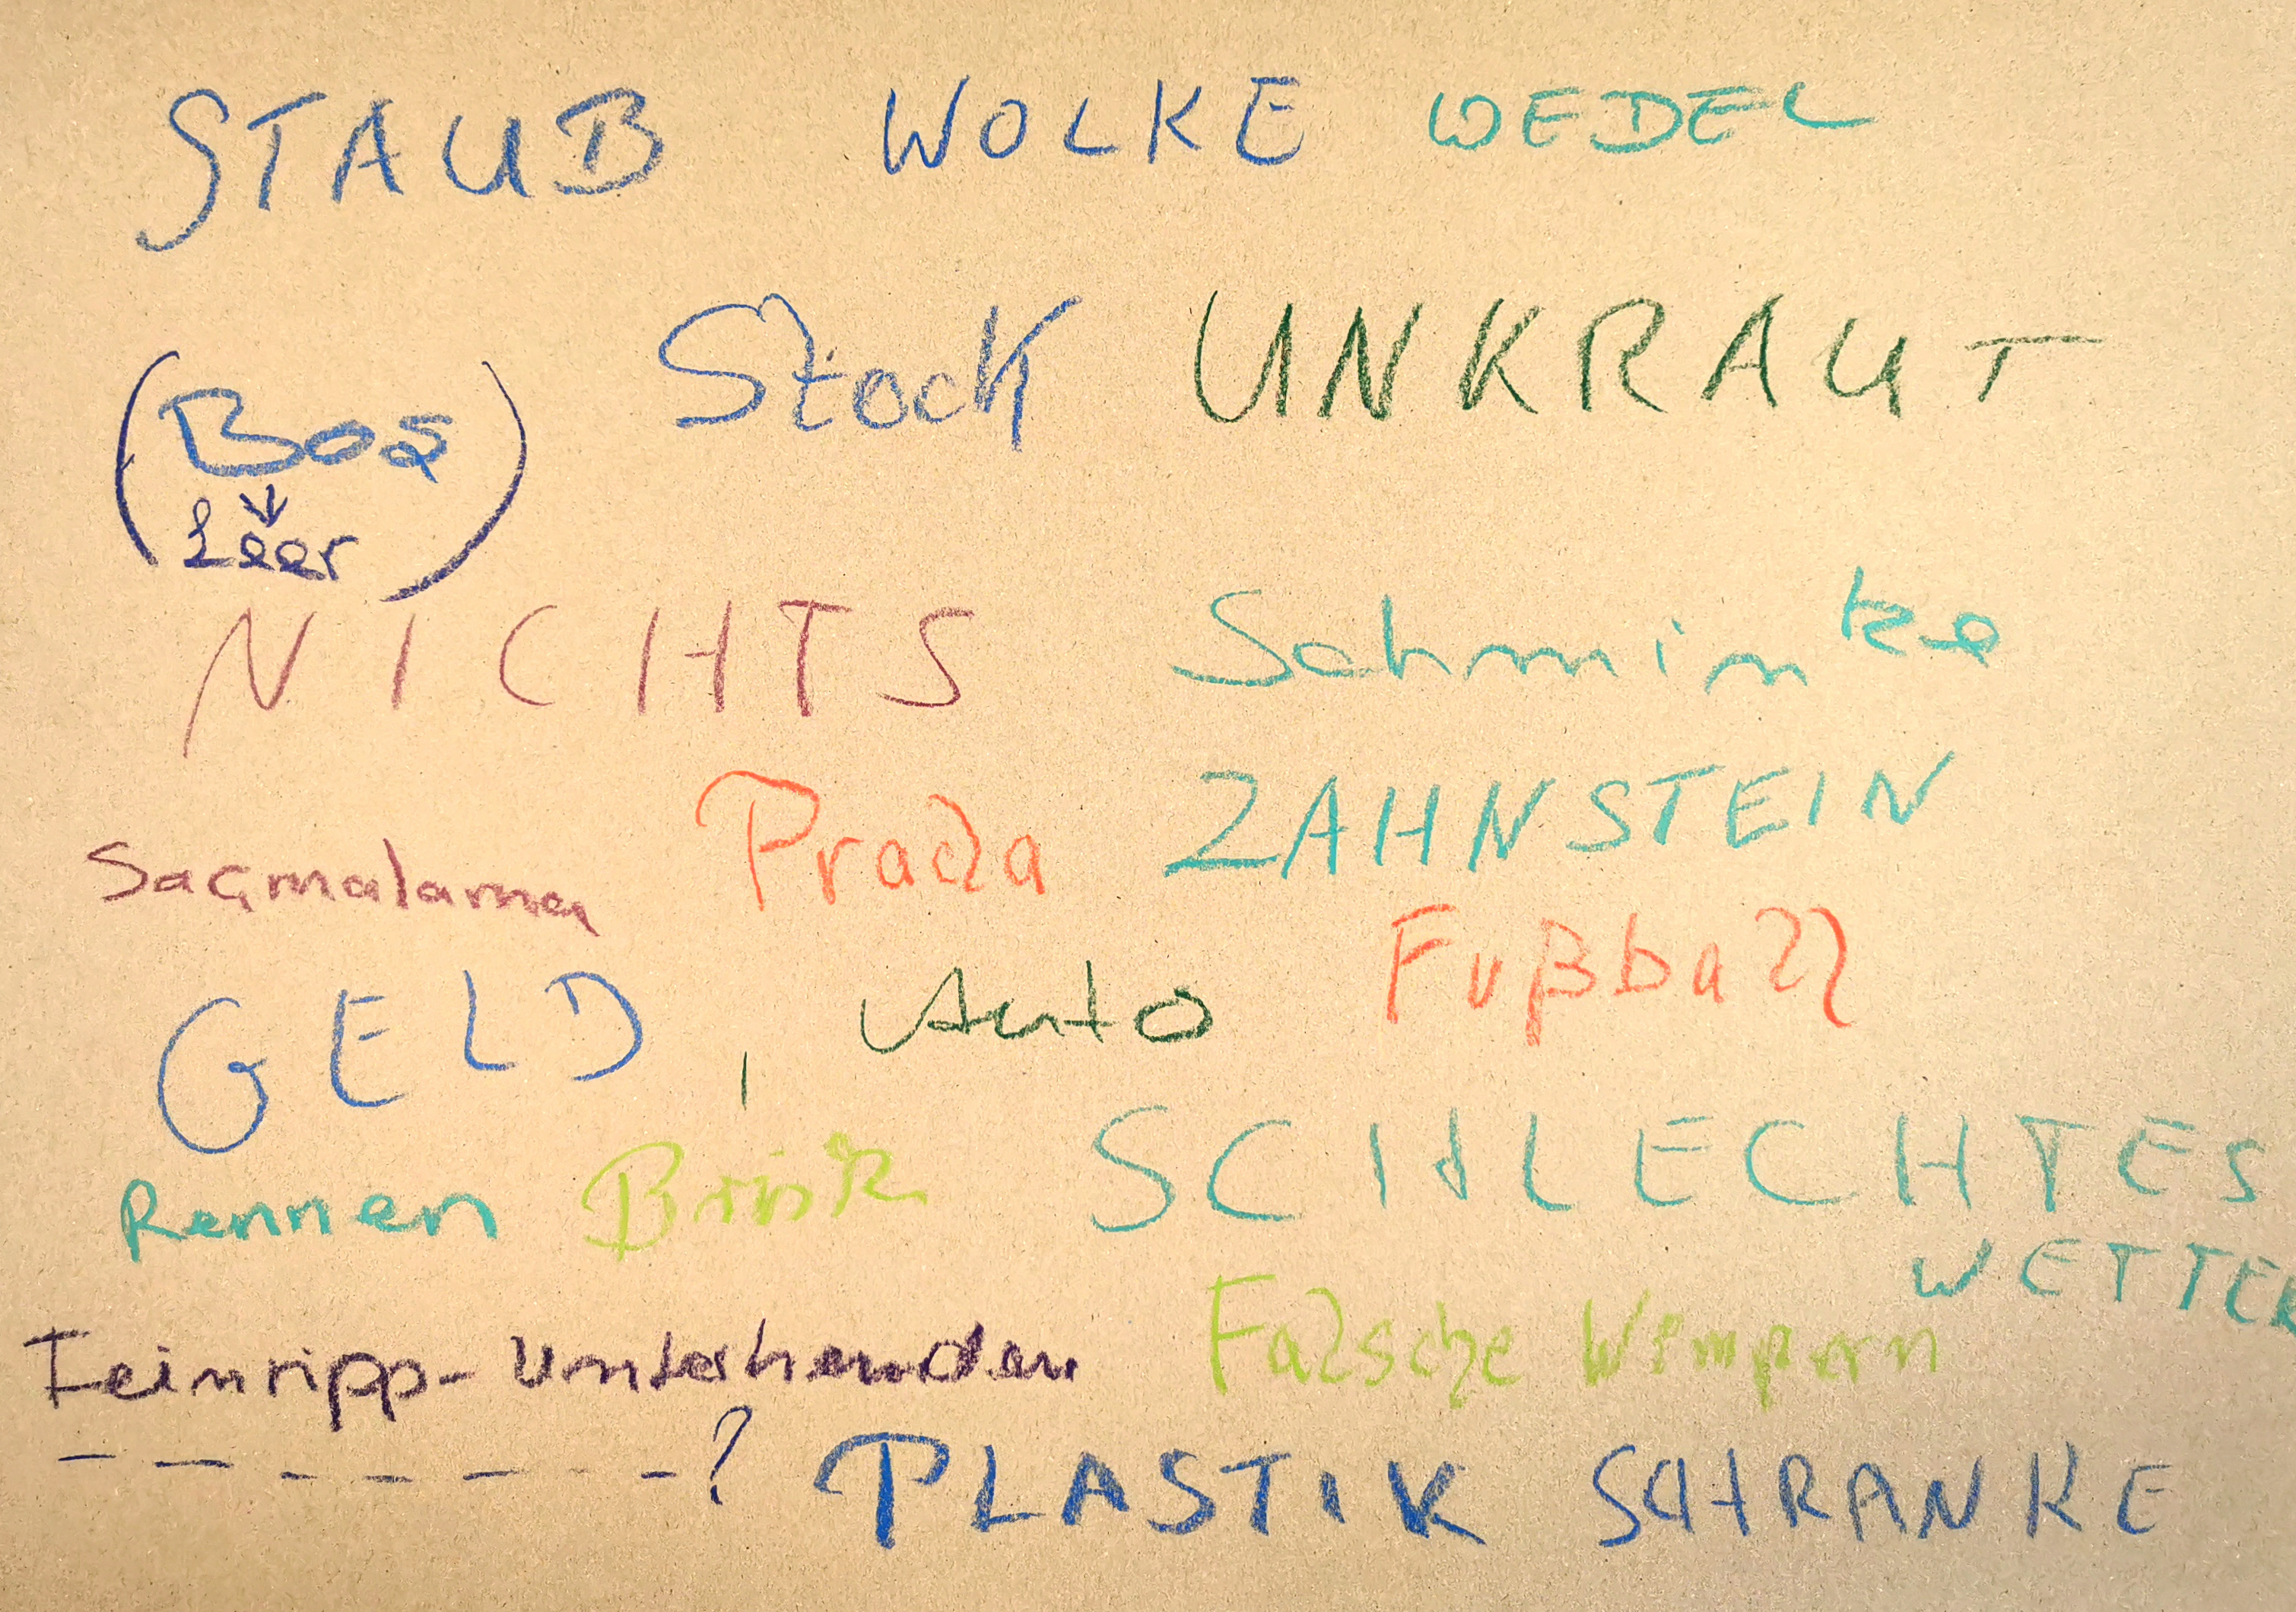 STAUB WOLKE WEDEL
Stock UNKRAUT
(
Leer)
NICHTS Schminke
Sagmalama Prada ZAHNSTEIN
GELD, Auto Fußball
Rennen SCHLECHTES
WETTER
Feinripp-Unterhemden Falsche Wimpern
--------? PLASTIK SCHRANKE